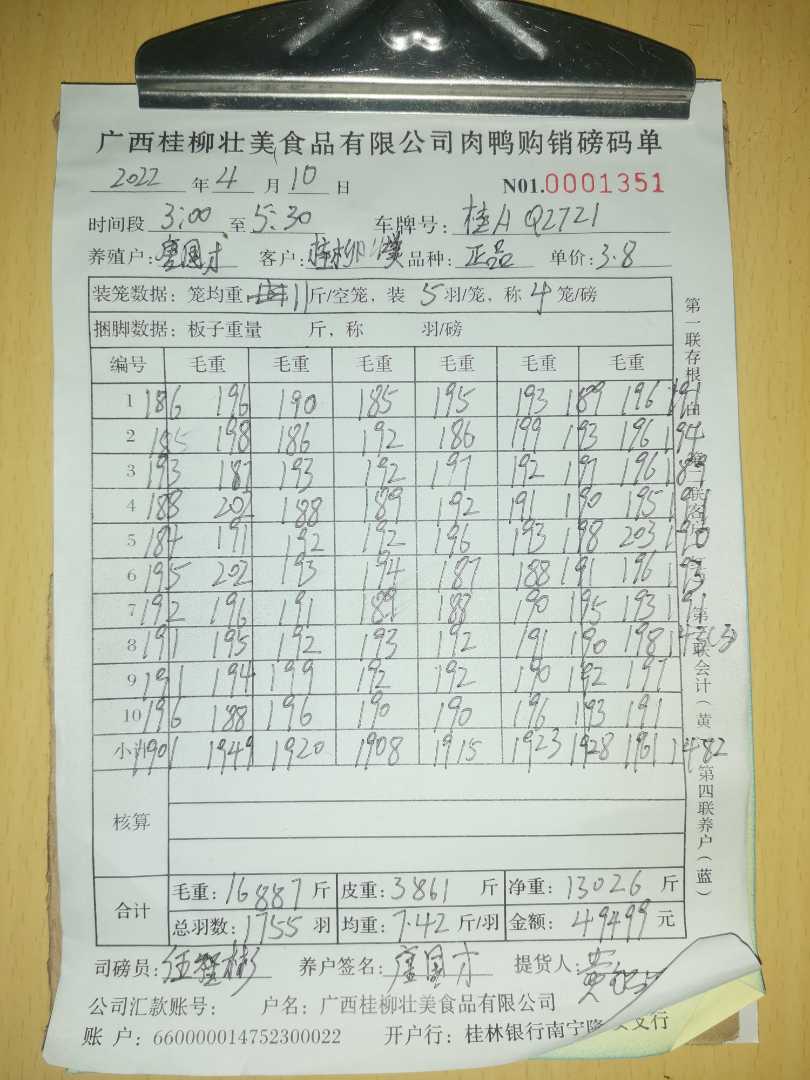 广西桂柳壮美食品有限公司肉鸭购销磅码单
2022 年 4 月 10 日 N01.0001351
时间段 3:00 至 5:30 车牌号: 桂A Q2721
养殖户: 唐国才 客户: 桂柳 品种: 正品 单价: 3.8
装笼数据: 笼均重 11 斤/空笼, 装 5 羽/笼, 称 4 笼/磅
捆脚数据: 板子重量 斤, 称 羽/磅
编号 毛重 毛重 毛重 毛重 毛重 毛重
1 186 196 190 185 195 193 189 196 191
2 185 198 186 192 186 199 193 196 194
3 193 187 193 192 197 192 197 196 189
4 188 202 188 189 192 191 190 195
5 184 191 192 192 196 193 198 203 190
6 195 202 193 194 187 188 191 196 193
7 192 196 191 189 188 190 195 193 191
8 191 195 192 193 192 191 190 198 143(3)
9 191 194 199 192 192 190 192 197
10 196 188 196 190 190 196 193 191
小计 1901 1949 1920 1908 1915 1923 1928 1961 1482
核算
合计 毛重: 16887 斤 皮重: 3861 斤 净重: 13026 斤
总羽数: 1755 羽 均重: 7.42 斤/羽 金额: 49499 元
司磅员: 伍 彬 养户签名: 唐国才 提货人: 黄
公司汇款账号: 户名: 广西桂柳壮美食品有限公司
账 户: 660000014752300022 开户行: 桂林银行南宁隆 支行
第一联存根 白 第二联客 红 第三联会计(黄) 第四联养户(蓝)